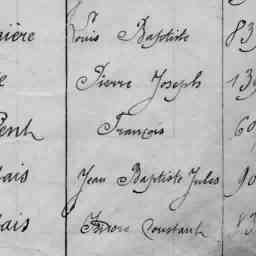 nière Louis Baptiste 83
e Pierre Joseph 139
Penh François 60
ais Jean Baptiste Jules 90
ais Constant 83